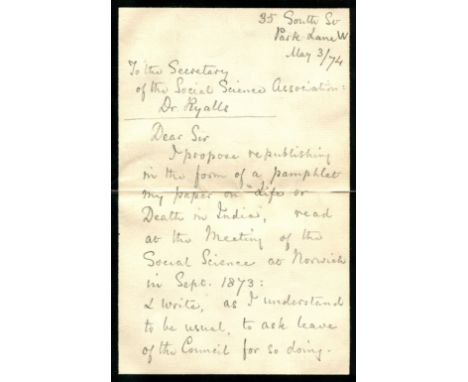 35 South St
Park Lane W
May 3/74
To the Secretary
of the Social Science Association:
Dr. Ryalls
Dear Sir
I propose republishing
in the form of a pamphlet
my paper on "Life or
Death in India", read
at the Meeting of the
Social Science at Norwich
in Sept. 1873:
& write, as I understand
to be usual, to ask leave
of the Council for so doing.